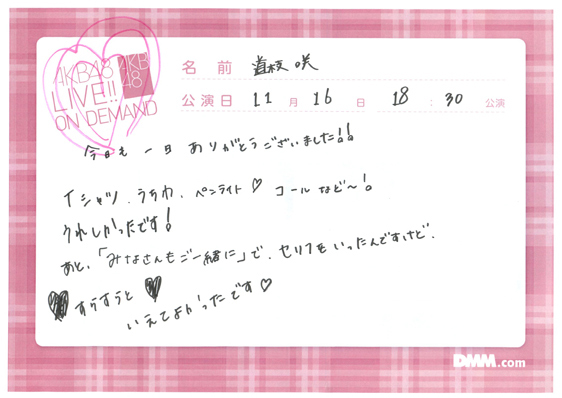 AKB48
LIVE!!
ON DEMAND
AKB
48
名前 道枝 咲
公演日 11月16日 18:30 公演
今日も一日ありがとうございました!!
Tシャツ、うちわ、ペンライト♡ コールなど〜!
うれしかったです!
あと、「みなさんもご一緒に」で、セリフをいったんですけど、
♥すらすらと♥
いえてよかったです♡
DMM.com